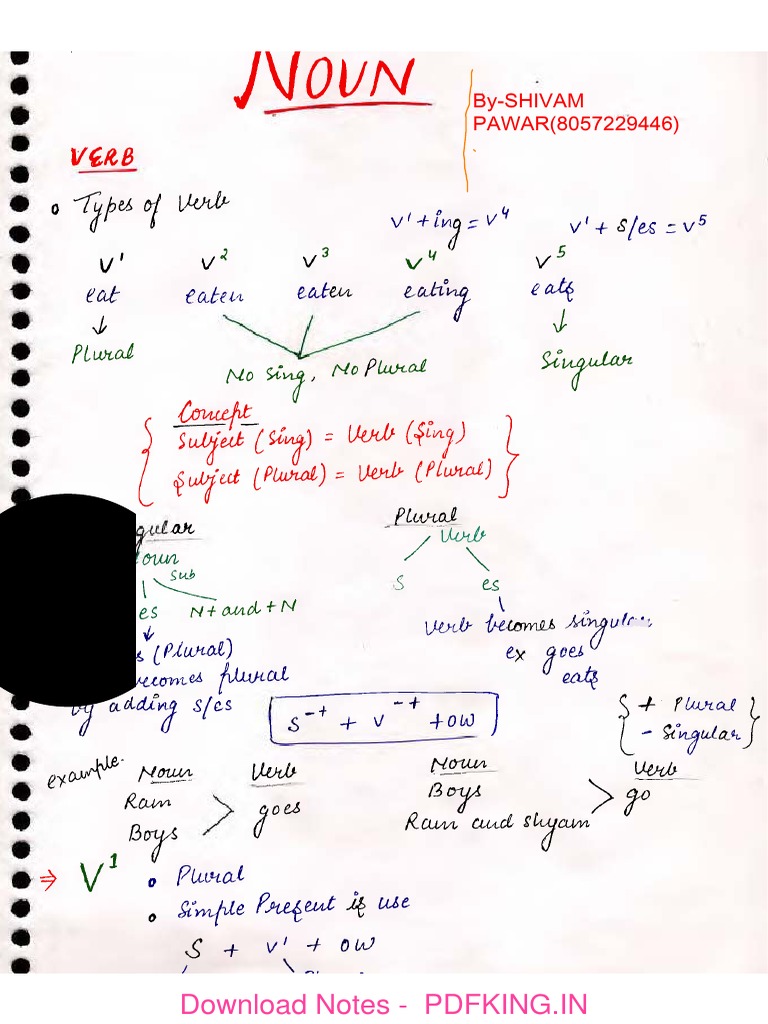 NOUN
By-SHIVAM
PAWAR(8057229446)
VERB
Types of Verb
V¹+ing = V⁴
V¹ + s/es = V⁵
V¹ V² V³ V⁴ V⁵
eat eaten eaten eating eats
Plural
No Sing, No Plural
Singular
Concept
Subject (Sing) = Verb (Sing)
Subject (Plural) = Verb (Plural)
gular
oun
Sub
es N + and + N
s (Plural)
ecomes plural
by adding s/es
Plural
Verb
S es
Verb becomes singular
ex goes
eats
S⁻⁺ + V⁻⁺ + OW
{ + Plural }
{ - Singular }
example.
Noun Verb
Ram
Boys
> goes
Noun Verb
Boys
Ram and shyam
> go
⇒ V¹
Plural
Simple Present is use
S + V¹ + OW
Download Notes - PDFKING.IN